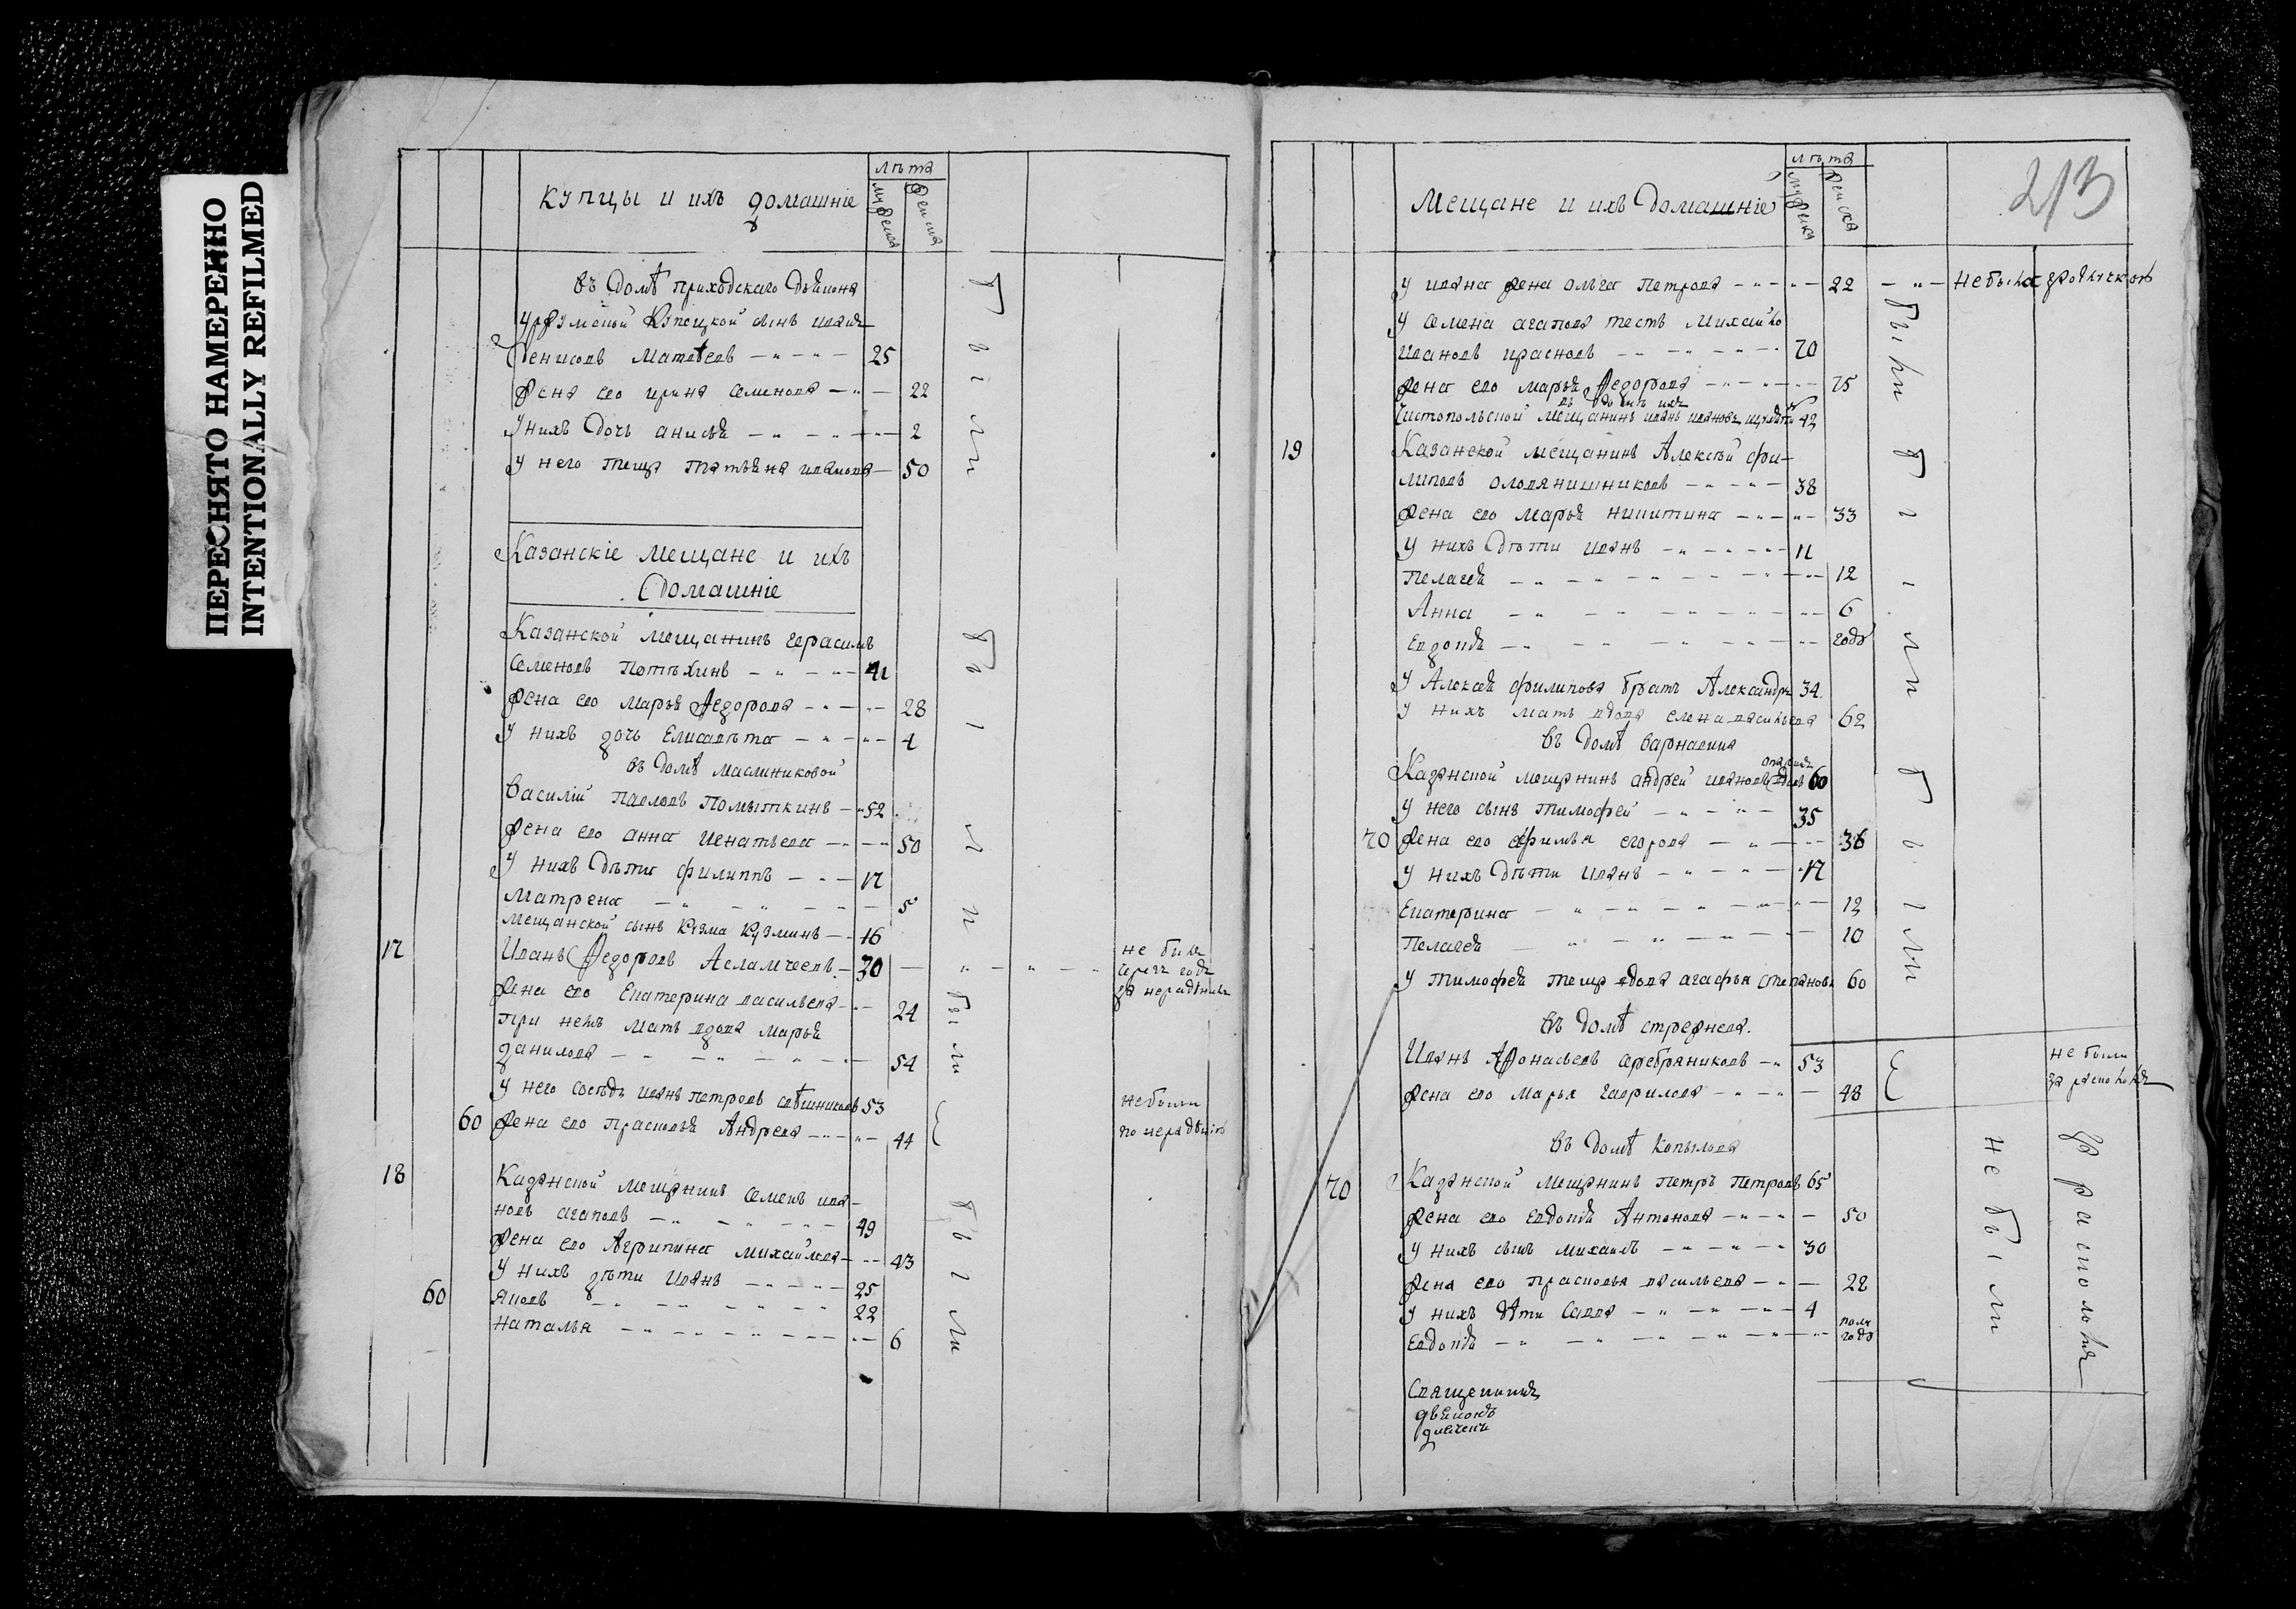 ПЕРЕСНЯТО НАМЕРЕННО
INTENTIONALLY REFILMED
купцы и ихъ домашнїе
лѣта
мужеска
женска
въ домѣ приходскаго дьякона
Уржумской Купецкой сынъ иванъ
Денисовъ Матвеевъ 25
жена ево ирина Семенова 22
У нихъ дочь анисья 2
у него теща татьяна иванова 50
были
Казанскїе мещане и ихъ
домашнїе
Казанской мещанинъ герасимъ
Семеновъ Потѣхинъ 41
жена ево Марья Федорова 28
У нихъ дочь Елисавѣта 4
въ домѣ маслениковой
Василїй Павловъ Помыткинъ 52
жена ево анна Игнатьева 50
У нихъ дѣти филиппъ 17
Матрена 5
мещанской сынъ Кузма Кузминъ 16
были
17 Иванъ Федоровъ 30 не былъ
жена ево Екатерина васильева 24
при немъ мать вдова Марья
данилова 54
были
У него сосѣдъ иванъ петровъ 53 не были
60 жена ево Прасковья Андреева 44 по нерадѣнїю
18 Казанской мещанинъ Семенъ ива-
новъ агаповъ 49
жена ево Агрипина михайлова 43
У нихъ дѣти Иванъ 25
60 Яковъ 22
Наталья 6
были
Мещане и ихъ домашнїе
лѣта
мужеска
женска
213
у ивана жена ольга Петрова 22 не была
у Семена агапова тесть Михайло
Ивановъ красновъ 70
жена ево марья Федорова 75
въ домѣ ихъ
Чистопольской мещанинъ иванъ ивановъ 42
были
19 Казанской мещанинъ Алексѣй фи-
липовъ оловянишниковъ 38
жена ево Марья никитина 33
У нихъ дѣти иванъ 11
Пелагея 12
Анна 6
Евдокия годъ
У Алексея филипова братъ Александръ 34
У нихъ мать вдова елена васильева 62
были
въ домѣ
Казанской мещанинъ андрей ивановъ 60
У него сынъ тимофей 35
70 жена ево ефимья егорова 36
У нихъ дѣти иванъ 17
Екатерина 12
Пелагея 10
У тимофея теща вдова агафья степанова 60
были
въ домѣ стрежнева
Иванъ Афонасьевъ серебряниковъ 53 не были
жена ево Марья гаврилова 48 за расколомъ
въ домѣ Копылова
70 Казанской мещанинъ петръ петровъ 65
жена ево евдокия Антонова 50
У нихъ сынъ михаилъ 30
жена ево прасковья васильева 22
У нихъ дѣти Савва 4
Евдокия полъ года
не были
за расколомъ
Священникъ
дьяконъ